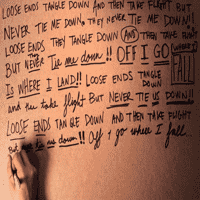 LOOSE ENDS TANGLE DOWN AND THEN TAKE FLIGHT BUT
NEVER TIE ME DOWN, THEY NEVER TIE ME DOWN!!
LOOSE ENDS THEY TANGLE DOWN AND THEN TAKE FLIGHT
BUT NEVER TIE ME DOWN!! OFF I GO WHERE I
FALL
IS WHERE I LAND!! LOOSE ENDS TANGLE
DOWN
and then take flight BUT NEVER TIE US DOWN!!
LOOSE ENDS TANGLE DOWN AND THEN TAKE FLIGHT
But never tie us down!! Off I go where I fall...